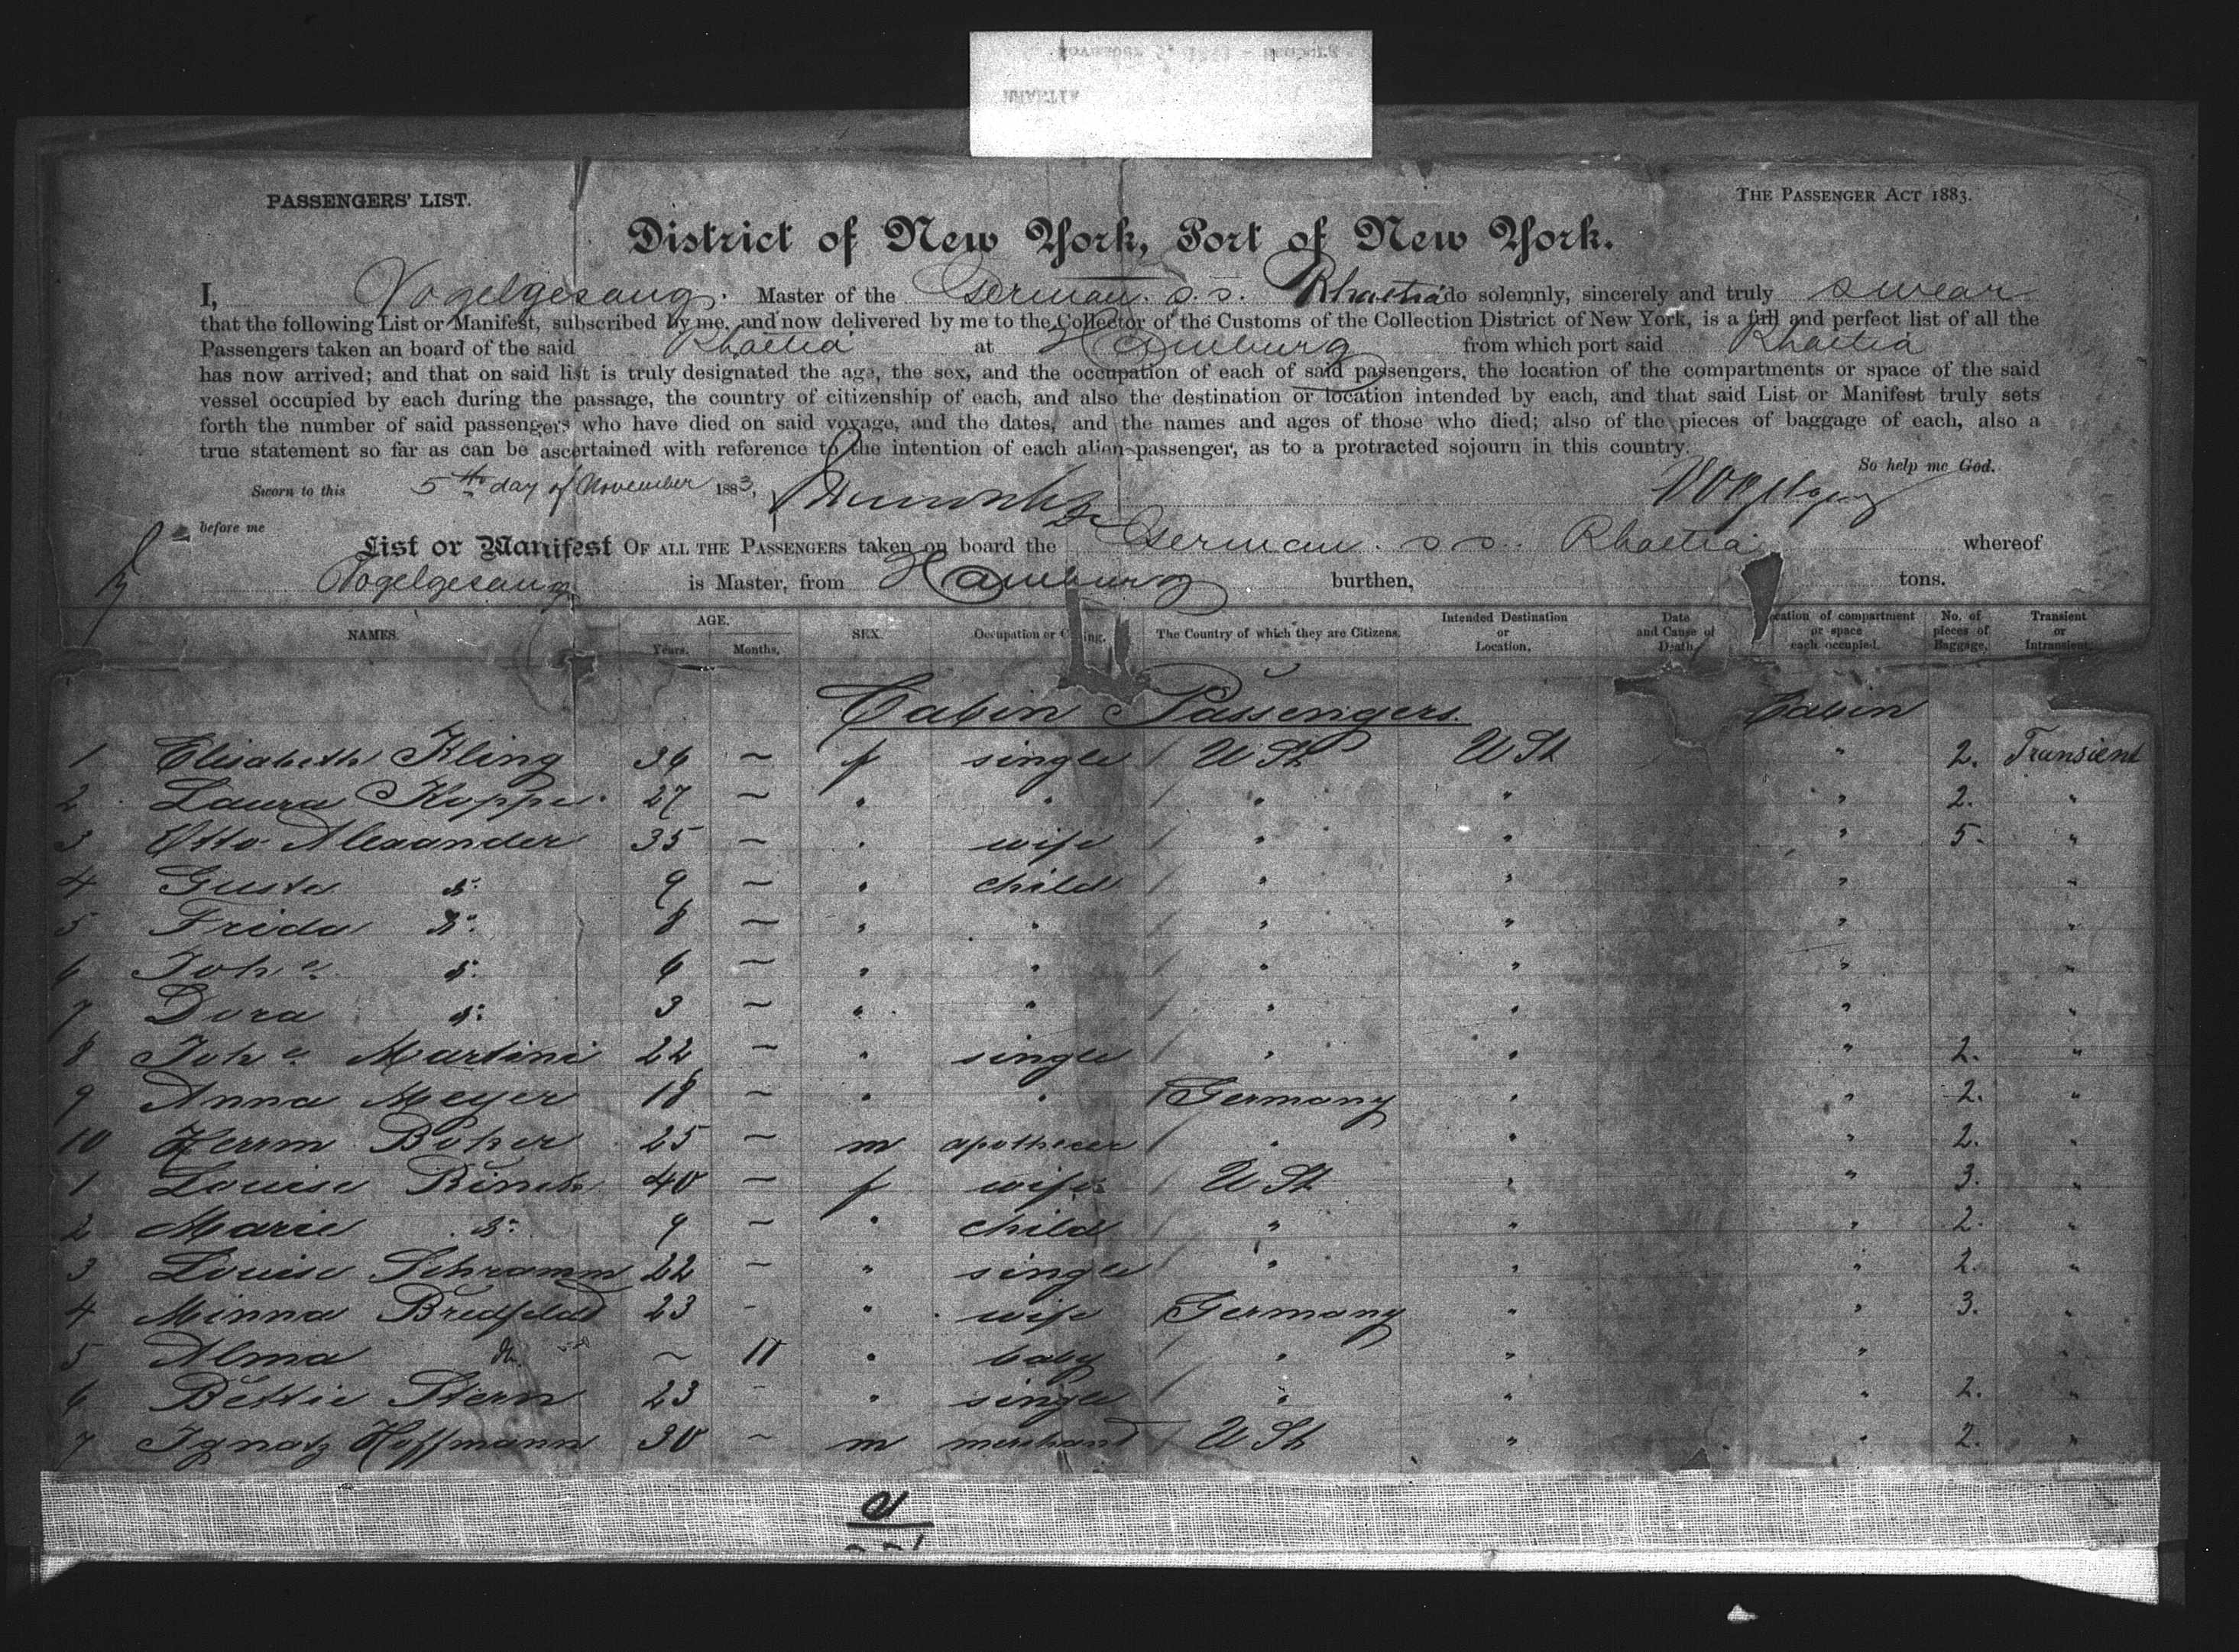 PASSENGERS' LIST.
THE PASSENGER ACT 1883.
District of New York, Port of New York.
I, Vogelgesang. Master of the German. s. s. Rhaetia do solemnly, sincerely and truly swear
that the following List or Manifest, subscribed by me, and now delivered by me to the Collector of the Customs of the Collection District of New York, is a full and perfect list of all the
Passengers taken an board of the said Rhaetia at Hamburg from which port said Rhaetia
has now arrived; and that on said list is truly designated the age, the sex, and the occupation of each of said passengers, the location of the compartments or space of the said
vessel occupied by each during the passage, the country of citizenship of each, and also the destination or location intended by each, and that said List or Manifest truly sets
forth the number of said passengers who have died on said voyage, and the dates, and the names and ages of those who died; also of the pieces of baggage of each, also a
true statement so far as can be ascertained with reference to the intention of each alien passenger, as to a protracted sojourn in this country.
So help me God.
Sworn to this 5th day of November 1883,
before me
List or Manifest OF ALL THE PASSENGERS taken on board the German. s s. Rhaetia whereof
Vogelgesang is Master, from Hamburg burthen, tons.
NAMES. AGE. Years. Months. SEX. Occupation or Calling. The Country of which they are Citizens. Intended Destination or Location. Date and Cause of Death. Location of compartment or space each occupied. No. of pieces of Baggage. Transient or Intransient.
Cabin Passengers. Cabin
1 Elisabeth Kling 36 ~ f single / U St U St " 2. Transient
2 Laura Koppe 27 ~ " " / " " " 2. "
3 Otto Alexander 35 ~ " wife / " " " 5. "
4 Guste do. 9 ~ " child / " " " "
5 Frida do. 8 ~ " " / " " " "
6 Johs. do. 6 ~ " " / " " " "
7 Dora do. 3 ~ " " / " " " "
8 Johs. Martini 22 ~ " single / " " " 2. "
9 Anna Meyer 18 ~ " " / Germany " " 2. "
10 Herm Boher 25 ~ m apothecar / " " " 2. "
1 Louise 40 ~ f wife / U St " " 3. "
2 Marie do. 9 ~ " child / " " " 2. "
3 Louise Schramm 22 ~ " single / " " " 2. "
4 Minna Bredfeldt 23 - " wife / Germany " " 3. "
5 Alma do. ~ 11 " baby / " " " "
6 Bettie Stern 23 - " single / " " " 2. "
7 Ignatz Hoffmann 30 ~ m merchant / U St " " 2. "